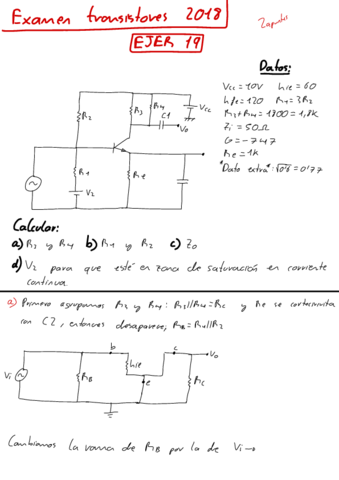 Examen transistores 2018
Zapantes
EJER 19
Datos:
Vcc = 10V hie = 60
hfe = 120 R1 = 3R2
R3 + R4 = 1800 = 1,8K
Zi = 50Ω
G = -747
Re = 1K
"Dato extra": √0'6 = 0'77
R2
R3
R4
C1
Vcc
Vo
R1
Re
V2
Calcular:
a) R3 y R4 b) R1 y R2 c) Zo
d) V2 para que esté en zona de saturación en corriente
continua.
a) Primero agrupamos R3 y R4: R3//R4 = Rc y Re se cortocircuita
con C2, entonces desaparece; RB = R1//R2
b
c
Vo
hie
Vi
RB
e
Rc
Cambiamos la rama de RB por la de Vi →